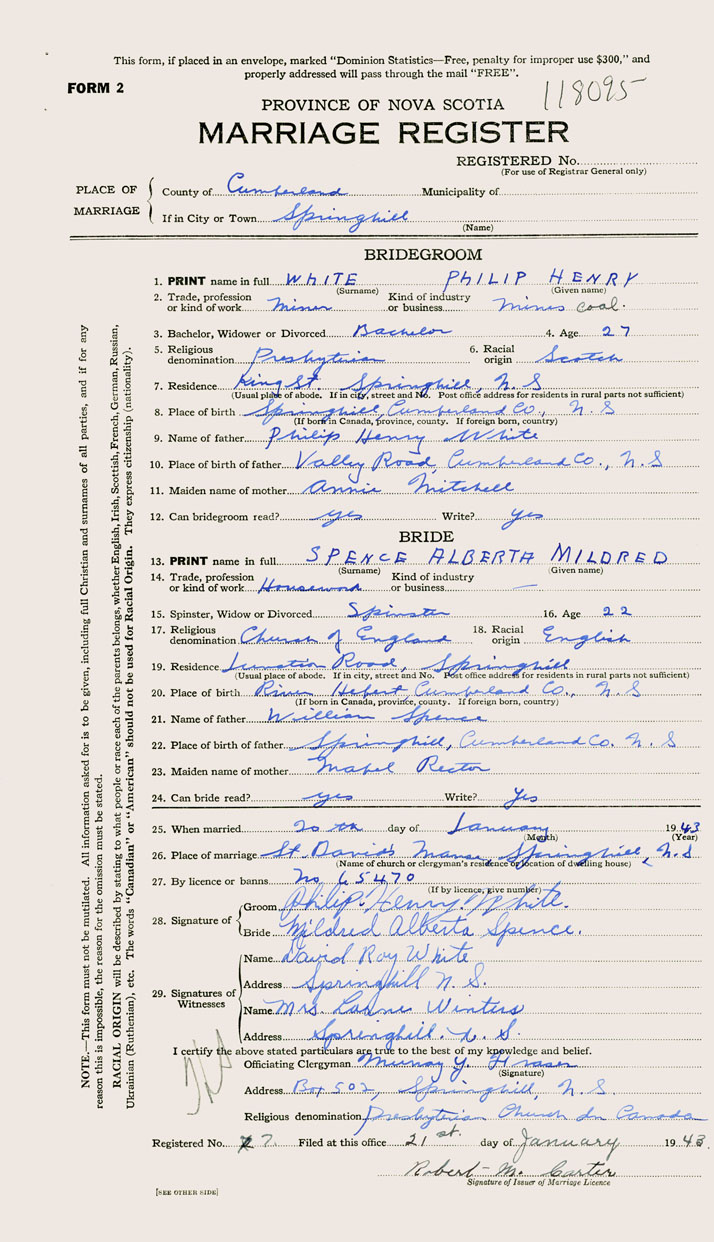 This form, if placed in an envelope, marked "Dominion Statistics—Free, penalty for improper use $300," and
properly addressed will pass through the mail "FREE".
FORM 2
118095
PROVINCE OF NOVA SCOTIA
MARRIAGE REGISTER
REGISTERED No.
(For use of Registrar General only)
PLACE OF MARRIAGE
County of Cumberland Municipality of
If in City or Town Springhill
(Name)
BRIDEGROOM
1. PRINT name in full WHITE PHILIP HENRY
(Surname) (Given name)
2. Trade, profession or kind of work Miner Kind of industry or business Mines coal.
3. Bachelor, Widower or Divorced Bachelor 4. Age 27
5. Religious denomination Presbyterian 6. Racial origin Scotch
7. Residence King St. Springhill, N.S
(Usual place of abode. If in city, street and No. Post office address for residents in rural parts not sufficient)
8. Place of birth Springhill, Cumberland Co., N.S
(If born in Canada, province, county. If foreign born, country)
9. Name of father Philip Henry White
10. Place of birth of father Valley Road, Cumberland Co., N.S
11. Maiden name of mother Annie Mitchell
12. Can bridegroom read? yes Write? yes
BRIDE
13. PRINT name in full SPENCE ALBERTA MILDRED
(Surname) (Given name)
14. Trade, profession or kind of work Kind of industry or business —
15. Spinster, Widow or Divorced Spinster 16. Age 22
17. Religious denomination Church of England 18. Racial origin English
19. Residence Road, Springhill
(Usual place of abode. If in city, street and No. Post office address for residents in rural parts not sufficient)
20. Place of birth River Hebert, Cumberland Co., N.S
(If born in Canada, province, county. If foreign born, country)
21. Name of father William Spence
22. Place of birth of father Springhill, Cumberland Co. N.S
23. Maiden name of mother Mabel Rector
24. Can bride read? yes Write? Yes
25. When married 20 th day of January 1943
(Month) (Year)
26. Place of marriage St. David's Manse, Springhill, N.S
(Name of church or clergyman's residence or location of dwelling house)
27. By licence or banns No. 65470
(If by licence, give number)
28. Signature of
Groom Philip. Henry. White.
Bride Mildred Alberta Spence.
29. Signatures of Witnesses
Name David Roy White
Address Springhill N.S.
Name Mrs. Winters
Address Springhill. N.S.
I certify the above stated particulars are true to the best of my knowledge and belief.
Officiating Clergyman Murray Y. Fraser
(Signature)
Address Box 502, Springhill, N.S.
Religious denomination Presbyterian Church In Canada
Registered No. 7. Filed at this office 21st. day of January 1943.
Robert M. Carter
Signature of Issuer of Marriage Licence
[SEE OTHER SIDE]
NOTE.—This form must not be mutilated. All information asked for is to be given, including full Christian and surnames of all parties, and if for any
reason this is impossible, the reason for the omission must be stated.
RACIAL ORIGIN will be described by stating to what people or race each of the parents belongs, whether English, Irish, Scottish, French, German, Russian,
Ukrainian (Ruthenian), etc. The words "Canadian" or "American" should not be used for Racial Origin. They express citizenship (nationality).